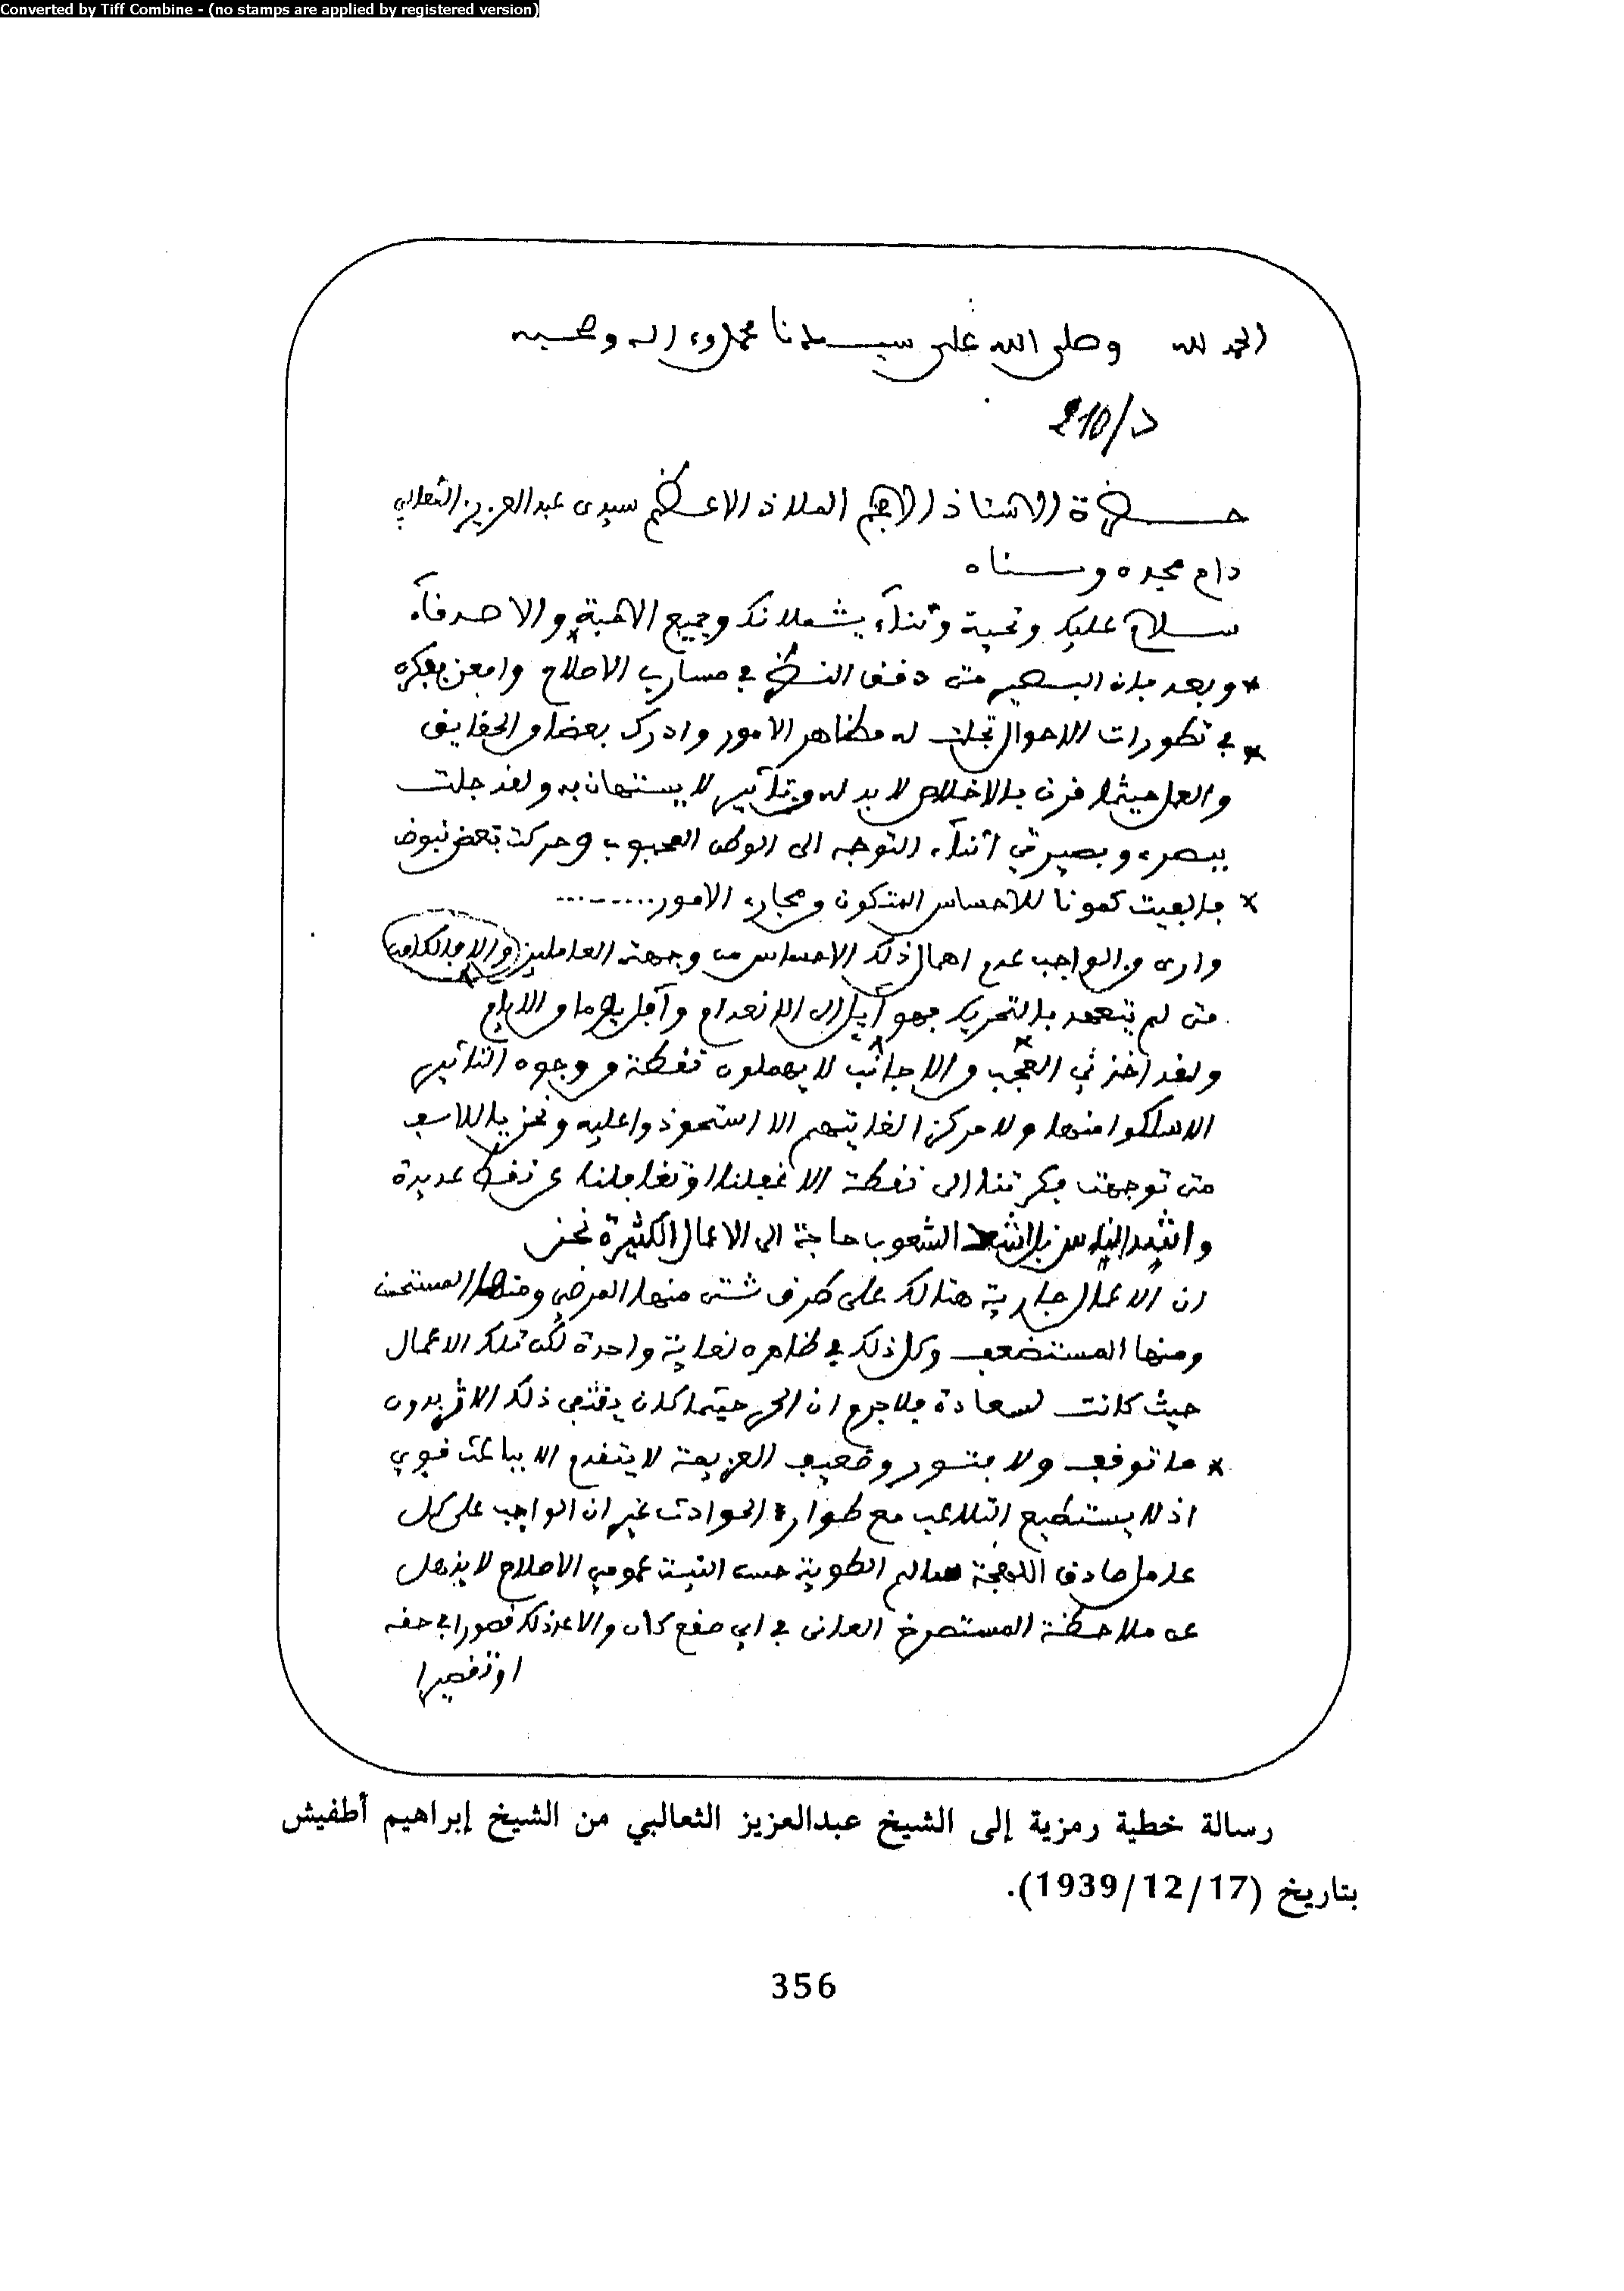 Converted by Tiff Combine - (no stamps are applied by registered version)
الحمد لله وصلى الله على سيدنا محمد وءاله وصحبه
د/210
حضرة الاستاذ الملاذ الاعظم سيدى عبد العزيز الثعالبي
دام مجده وسناه
سلام عليك وتحية وثناء يشملانك وجميع الاحبة والاصدقاء
وبعد فان البصير متى دقق النظر في مسارب الاصلاح وامعن بفكره
في تطورات الاحوال تجلت له مظاهر الامور وادرك بعضا من الحقايق
والعمل حيثما قرن بالاخلاص لا بد له من تأثير لا يستهان به ولقد جلت
ببصرى وبصيرتي اثناء التوجه الى الوطن المحبوب وحركت بعض نبوض
فالفيت كمونا للاحساس المتكون ومجارى الامور.........
وارى من الواجب عدم اهمال ذلك الاحساس من وجهة العاملين
متى لم يتعهد بالتحريك فهو آيل الى الانعدام
ولقد اخذني العجب من الاجانب لا يهملون نقطة من وجوه التأثير
الا سلكوا منها ولا مركزا لغايتهم الا استحوذوا عليه ونحن ياللاسف
متى توجهت فكرتنا الى نقطة الا غفلنا او تغافلنا عن نقط عديدة
الشعوب حاجة الى الاعمال الكثيرة نحن
ان الاعمال جارية هنالك على طرق شتى منها المرضي ومنها المستحسن
ومنها المستضعف وكل ذلك في ظاهره لغاية واحدة لكن تلك الاعمال
حيث كانت لسعادة فلا جرم ان الحر حيثما كان يقتضي ذلك الا
ما توقف ولا فتور وضعيف العزيمة لا يتقدم الا بباعث قوي
اذ لا يستطيع التلاعب مع طوارئ الحوادث غير ان الواجب على كل
عامل صادق اللهجة سالم الطوية حسن النية عمومي الاصلاح لا يذهل
عن ملاحظة المستصرخ العانى في اي صقع كان والا عد ذلك قصورا في حقه
او تقصيرا
رسالة خطية رمزية إلى الشيخ عبدالعزيز الثعالبي من الشيخ إبراهيم أطفيش
بتاريخ (1939/12/17).
356